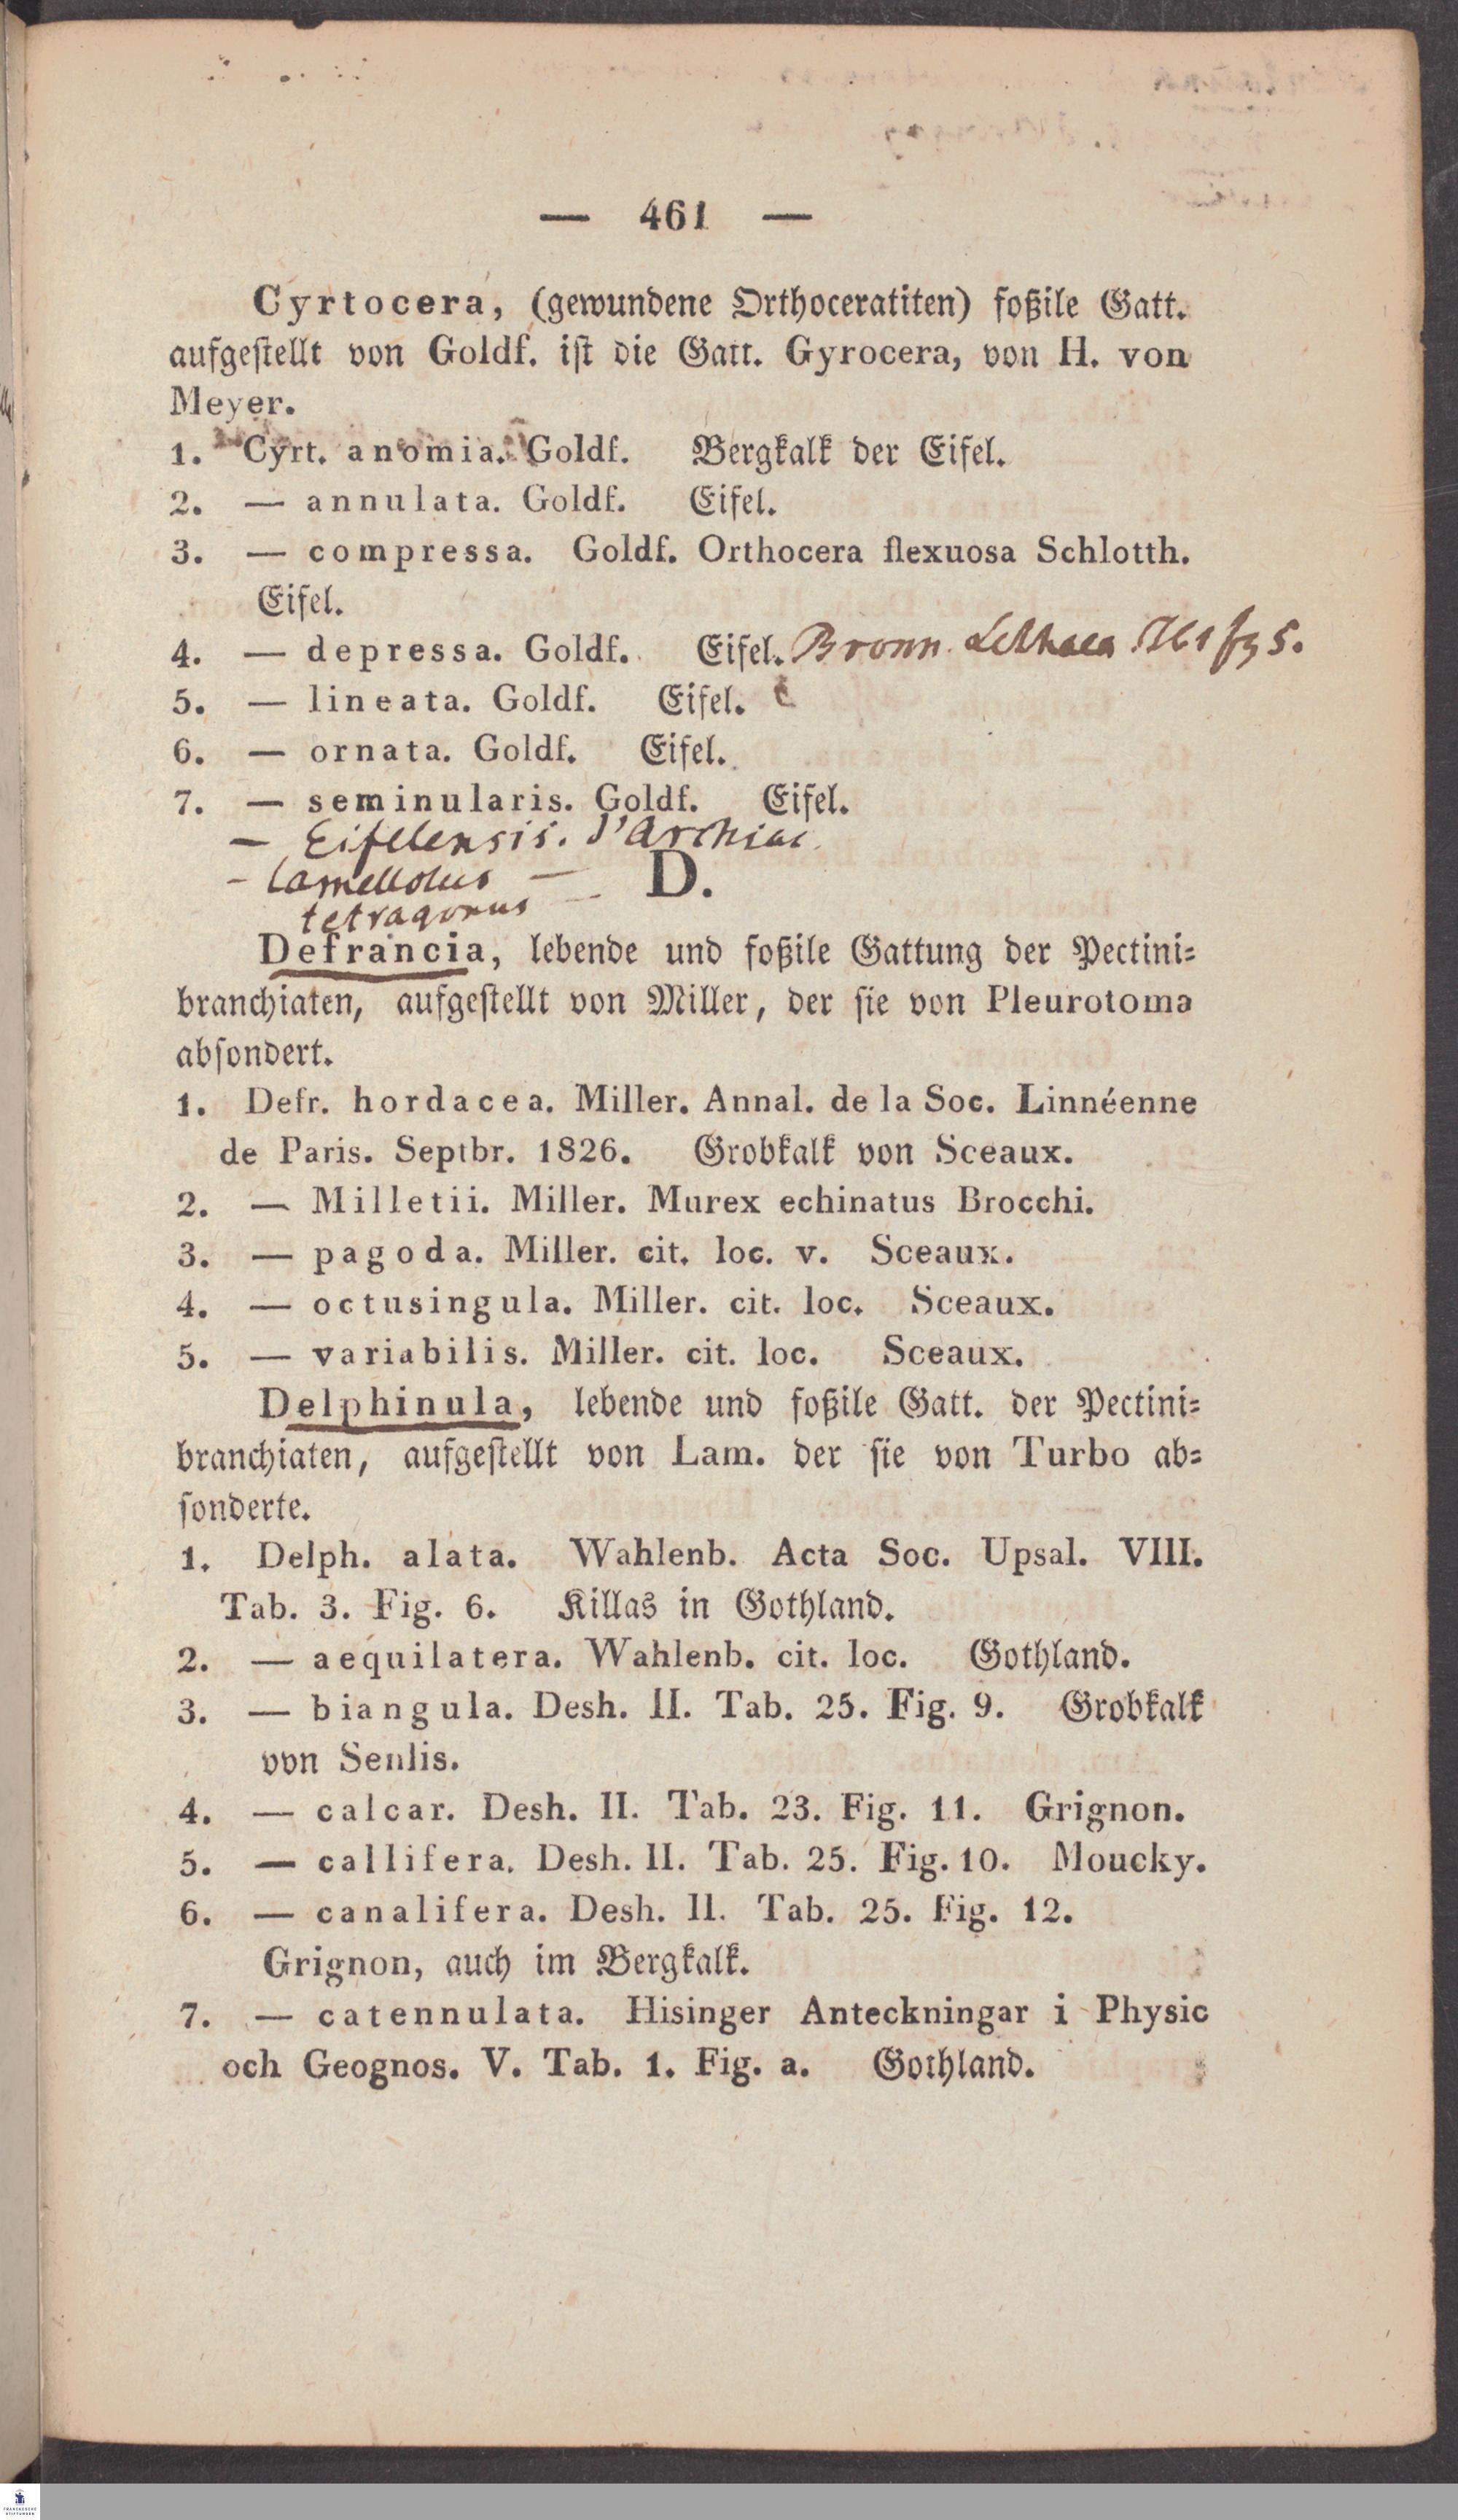 — 461 —
Cyrtocera, (gewundene Orthoceratiten) foßile Gatt.
aufgestellt von Goldf. ist die Gatt. Gyrocera, von H. von
Meyer.
1. Cyrt. anomia. Goldf. Bergkalk der Eifel.
2. — annulata. Goldf. Eifel.
3. — compressa. Goldf. Orthocera flexuosa Schlotth.
Eifel.
4. — depressa. Goldf. Eifel. Bronn Lethaea
5. — lineata. Goldf. Eifel.
6. — ornata. Goldf. Eifel.
7. — seminularis. Goldf. Eifel.
— Eifelensis. d'Archiac
— lamellosus —
D.
tetragonus —
Defrancia, lebende und foßile Gattung der Pectini-
branchiaten, aufgestellt von Miller, der sie von Pleurotoma
absondert.
1. Defr. hordacea. Miller. Annal. de la Soc. Linnéenne
de Paris. Septbr. 1826. Grobkalk von Sceaux.
2. — Milletii. Miller. Murex echinatus Brocchi.
3. — pagoda. Miller. cit. loc. v. Sceaux.
4. — octusingula. Miller. cit. loc. Sceaux.
5. — variabilis. Miller. cit. loc. Sceaux.
Delphinula, lebende und foßile Gatt. der Pectini-
branchiaten, aufgestellt von Lam. der sie von Turbo ab-
sonderte.
1. Delph. alata. Wahlenb. Acta Soc. Upsal. VIII.
Tab. 3. Fig. 6. Killas in Gothland.
2. — aequilatera. Wahlenb. cit. loc. Gothland.
3. — biangula. Desh. II. Tab. 25. Fig. 9. Grobkalk
von Senlis.
4. — calcar. Desh. II. Tab. 23. Fig. 11. Grignon.
5. — callifera. Desh. II. Tab. 25. Fig. 10. Moucky.
6. — canalifera. Desh. II. Tab. 25. Fig. 12.
Grignon, auch im Bergkalk.
7. — catennulata. Hisinger Anteckningar i Physic
och Geognos. V. Tab. 1. Fig. a. Gothland.
FRANCKESCHE
STIFTUNGEN